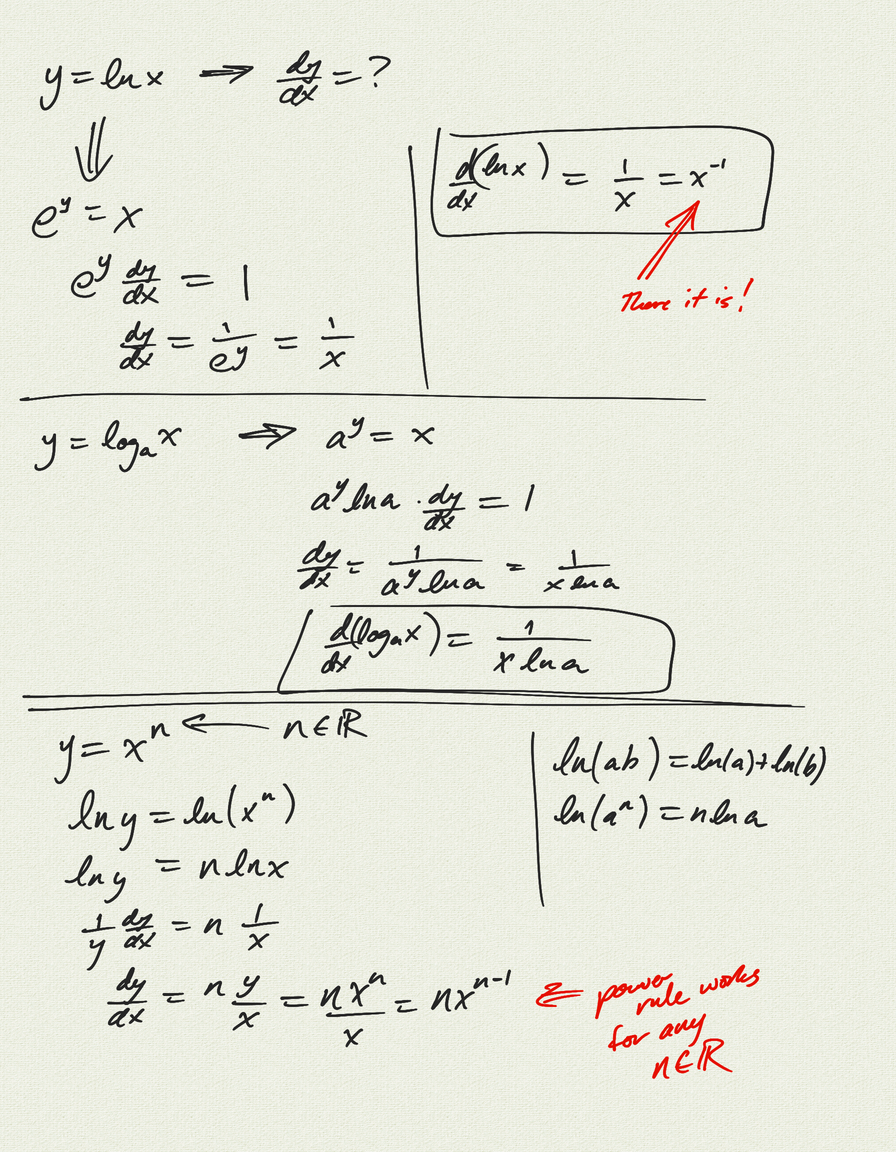 y = ln x ⟹ dy/dx = ?
⇓
e^y = x
e^y dy/dx = 1
dy/dx = 1/e^y = 1/x
d/dx (ln x) = 1/x = x^-1
There it is!
y = log_a x ⟹ a^y = x
a^y ln a · dy/dx = 1
dy/dx = 1/(a^y ln a) = 1/(x ln a)
d/dx (log_a x) = 1/(x ln a)
y = x^n ← n ∈ ℝ
ln y = ln(x^n)
ln y = n ln x
1/y dy/dx = n 1/x
dy/dx = n y/x = nx^n/x = nx^(n-1)
⇐ power
rule works
for any
n ∈ ℝ
ln(ab) = ln(a) + ln(b)
ln(a^n) = n ln a